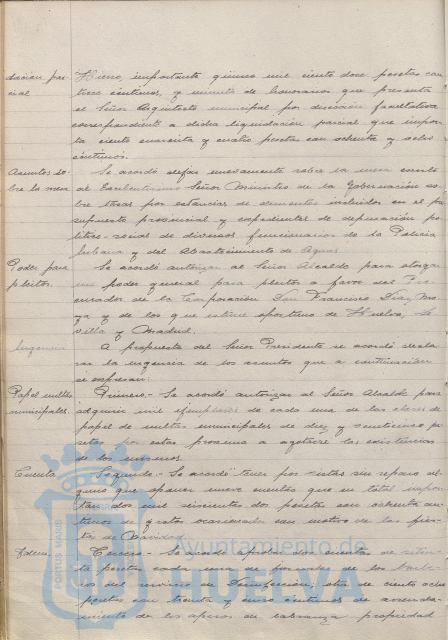 dación par-
cial
Hierro, importante quince mil ciento doce pesetas con
trece céntimos, y minuta de honorarios que presenta
el Señor Arquitecto municipal por dirección facultativa
correspondiente a dicha liquidación parcial que impor-
ta ciento cuarenta y cuatro pesetas con ochenta y seis
céntimos.
Asuntos so-
bre la mesa
Se acordó dejar nuevamente sobre la mesa escrito
al Excelentísimo Señor Ministro de la Gobernación so-
bre bases por estancias de dementes incluidos en el pre
supuesto provincial y expedientes de depuración po-
lítico-social de diversos funcionarios de la Policía
Urbana y del Abastecimiento de Aguas.
Poder para
pleitos.
Se acordó autorizar al Señor Alcalde para otorgar
un poder general para pleitos a favor del Pro-
curador de la Corporación Don Francisco Díaz
y de los que estime oportuno de Huelva, Se-
villa y Madrid.
Urgencia
A propuesta del Señor Presidente se acordó decla-
rar la urgencia de los asuntos que a continuación
se expresan:
Papel multas
municipales.
Primero.- Se acordó autorizar al Señor Alcalde para
adquirir mil ejemplares de cada una de las clases de
papel de multas municipales de diez y veinticinco pe-
setas por estar próxima a agotarse las existencias
de los mismos.
Cuenta
Segundo.- Se acordó tener por vistas sin reparo al-
guno que oponer nueve cuentas que en total impor-
tan dos mil seiscientas dos pesetas con ochenta cén-
timos de gastos ocasionados con motivo de las fies-
tas de Navidad.
Idem.
Tercero.- Se acordó aprobar dos cuentas de
pesetas cada una de
del
pesetas con treinta y cinco céntimos de arrenda-
miento de los aperos de labranza propiedad
Ayuntamiento de
HUELVA
PORTUS MARIS